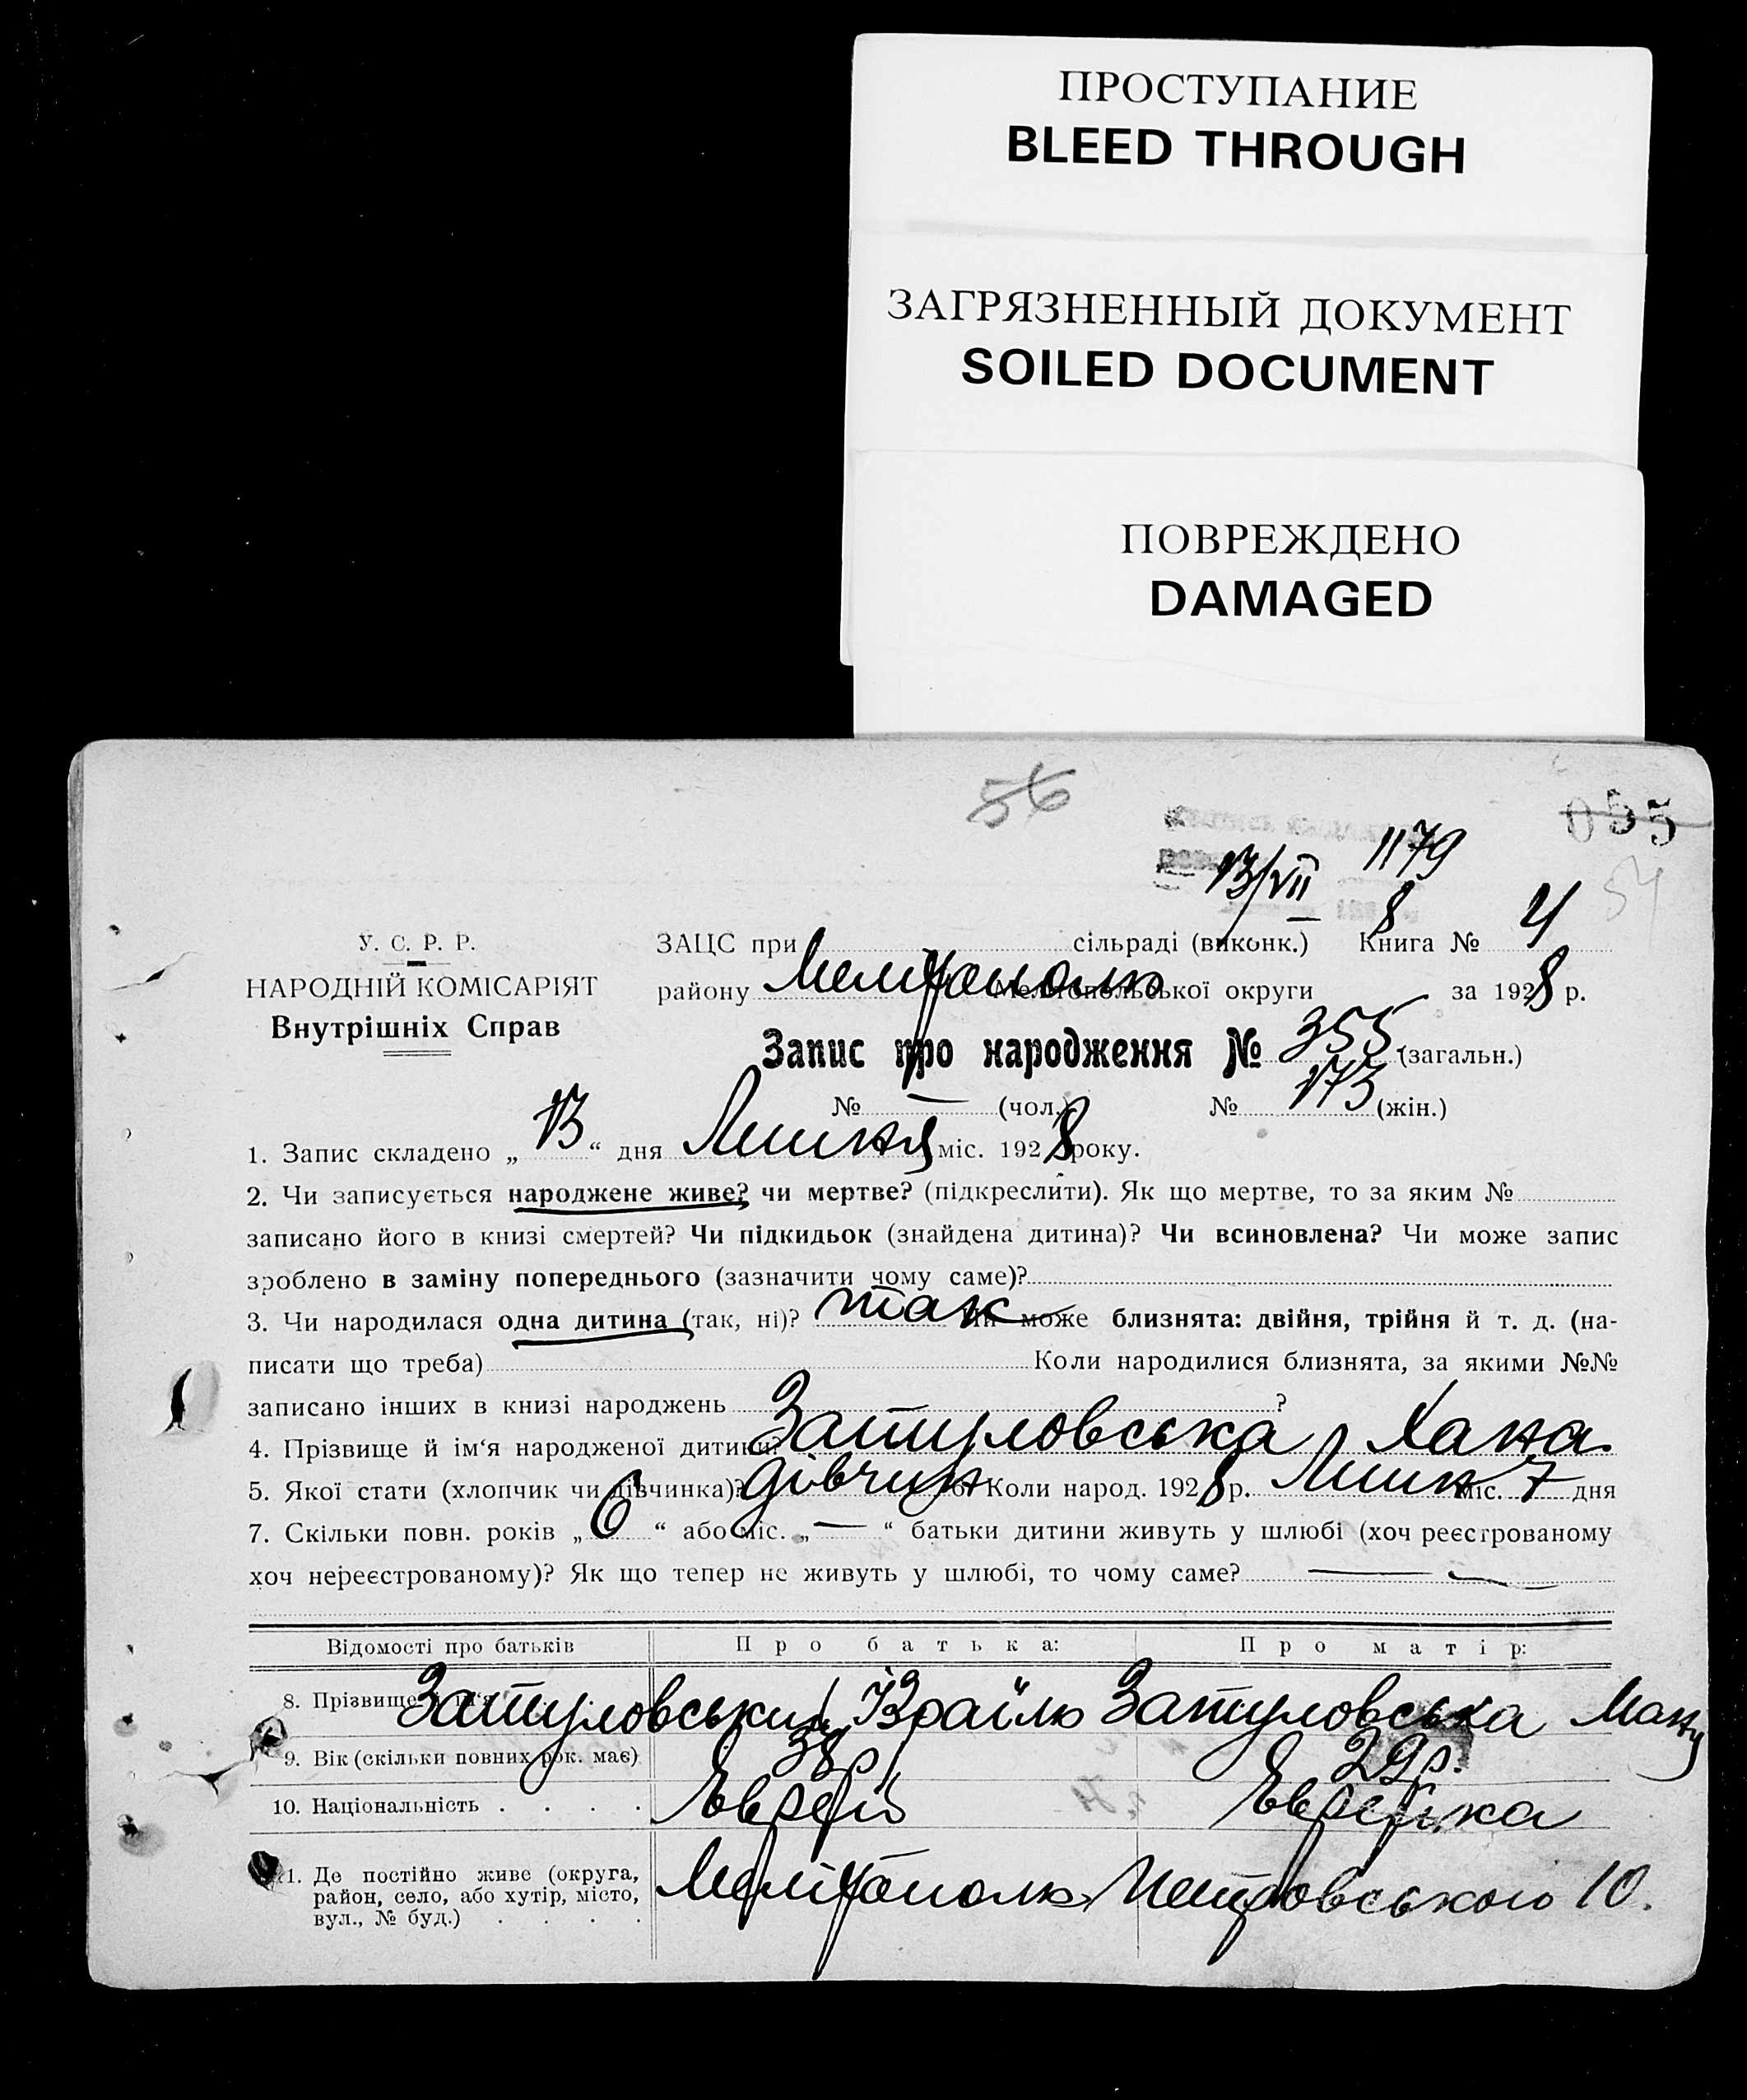 ПРОСТУПАНИЕ
BLEED THROUGH
ЗАГРЯЗНЕННЫЙ ДОКУМЕНТ
SOILED DOCUMENT
ПОВРЕЖДЕНО
DAMAGED
56
055
54
1179
13/VII 8
У. С. Р. Р.
НАРОДНІЙ КОМІСАРІЯТ
Внутрішніх Справ
ЗАЦС при сільраді (виконк.) Книга № 4
району Мелітополь Мелітопольської округи за 1928 р.
Запис про народження № 355 (загальн.)
№ — (чол.) № 173 (жін.)
1. Запис складено „13“ дня Липня міс. 1928 року.
2. Чи записується народжене живе? чи мертве? (підкреслити). Як що мертве, то за яким №
записано його в книзі смертей? Чи підкидьок (знайдена дитина)? Чи всиновлена? Чи може запис
зроблено в заміну попереднього (зазначити чому саме)?
3. Чи народилася одна дитина (так, ні)? так Чи може близнята: двійня, трійня й т. д. (на-
писати що треба) Коли народилися близнята, за якими №№
записано інших в книзі народжень ?
4. Прізвище й ім‘я народженої дитини? Затуловська Хана
5. Якої стати (хлопчик чи дівчинка)? дівчин 6. Коли народ. 1928 р. Липн міс. 7 дня
7. Скільки повн. років „6“ або міс. „—“ батьки дитини живуть у шлюбі (хоч реєстрованому
хоч нереєстрованому)? Як що тепер не живуть у шлюбі, то чому саме? —
Відомості про батьків Про батька: Про матір:
8. Прізвище й ім‘я Затуловський Ізраїль Затуловська
9. Вік (скільки повних рок. має) 38 р. 29 р.
10. Національність . . . . Еврей Еврейка
11. Де постійно живе (округа, район, село, або хутір, місто, вул., № буд.) . . . . Мелітополь Петровського 10.